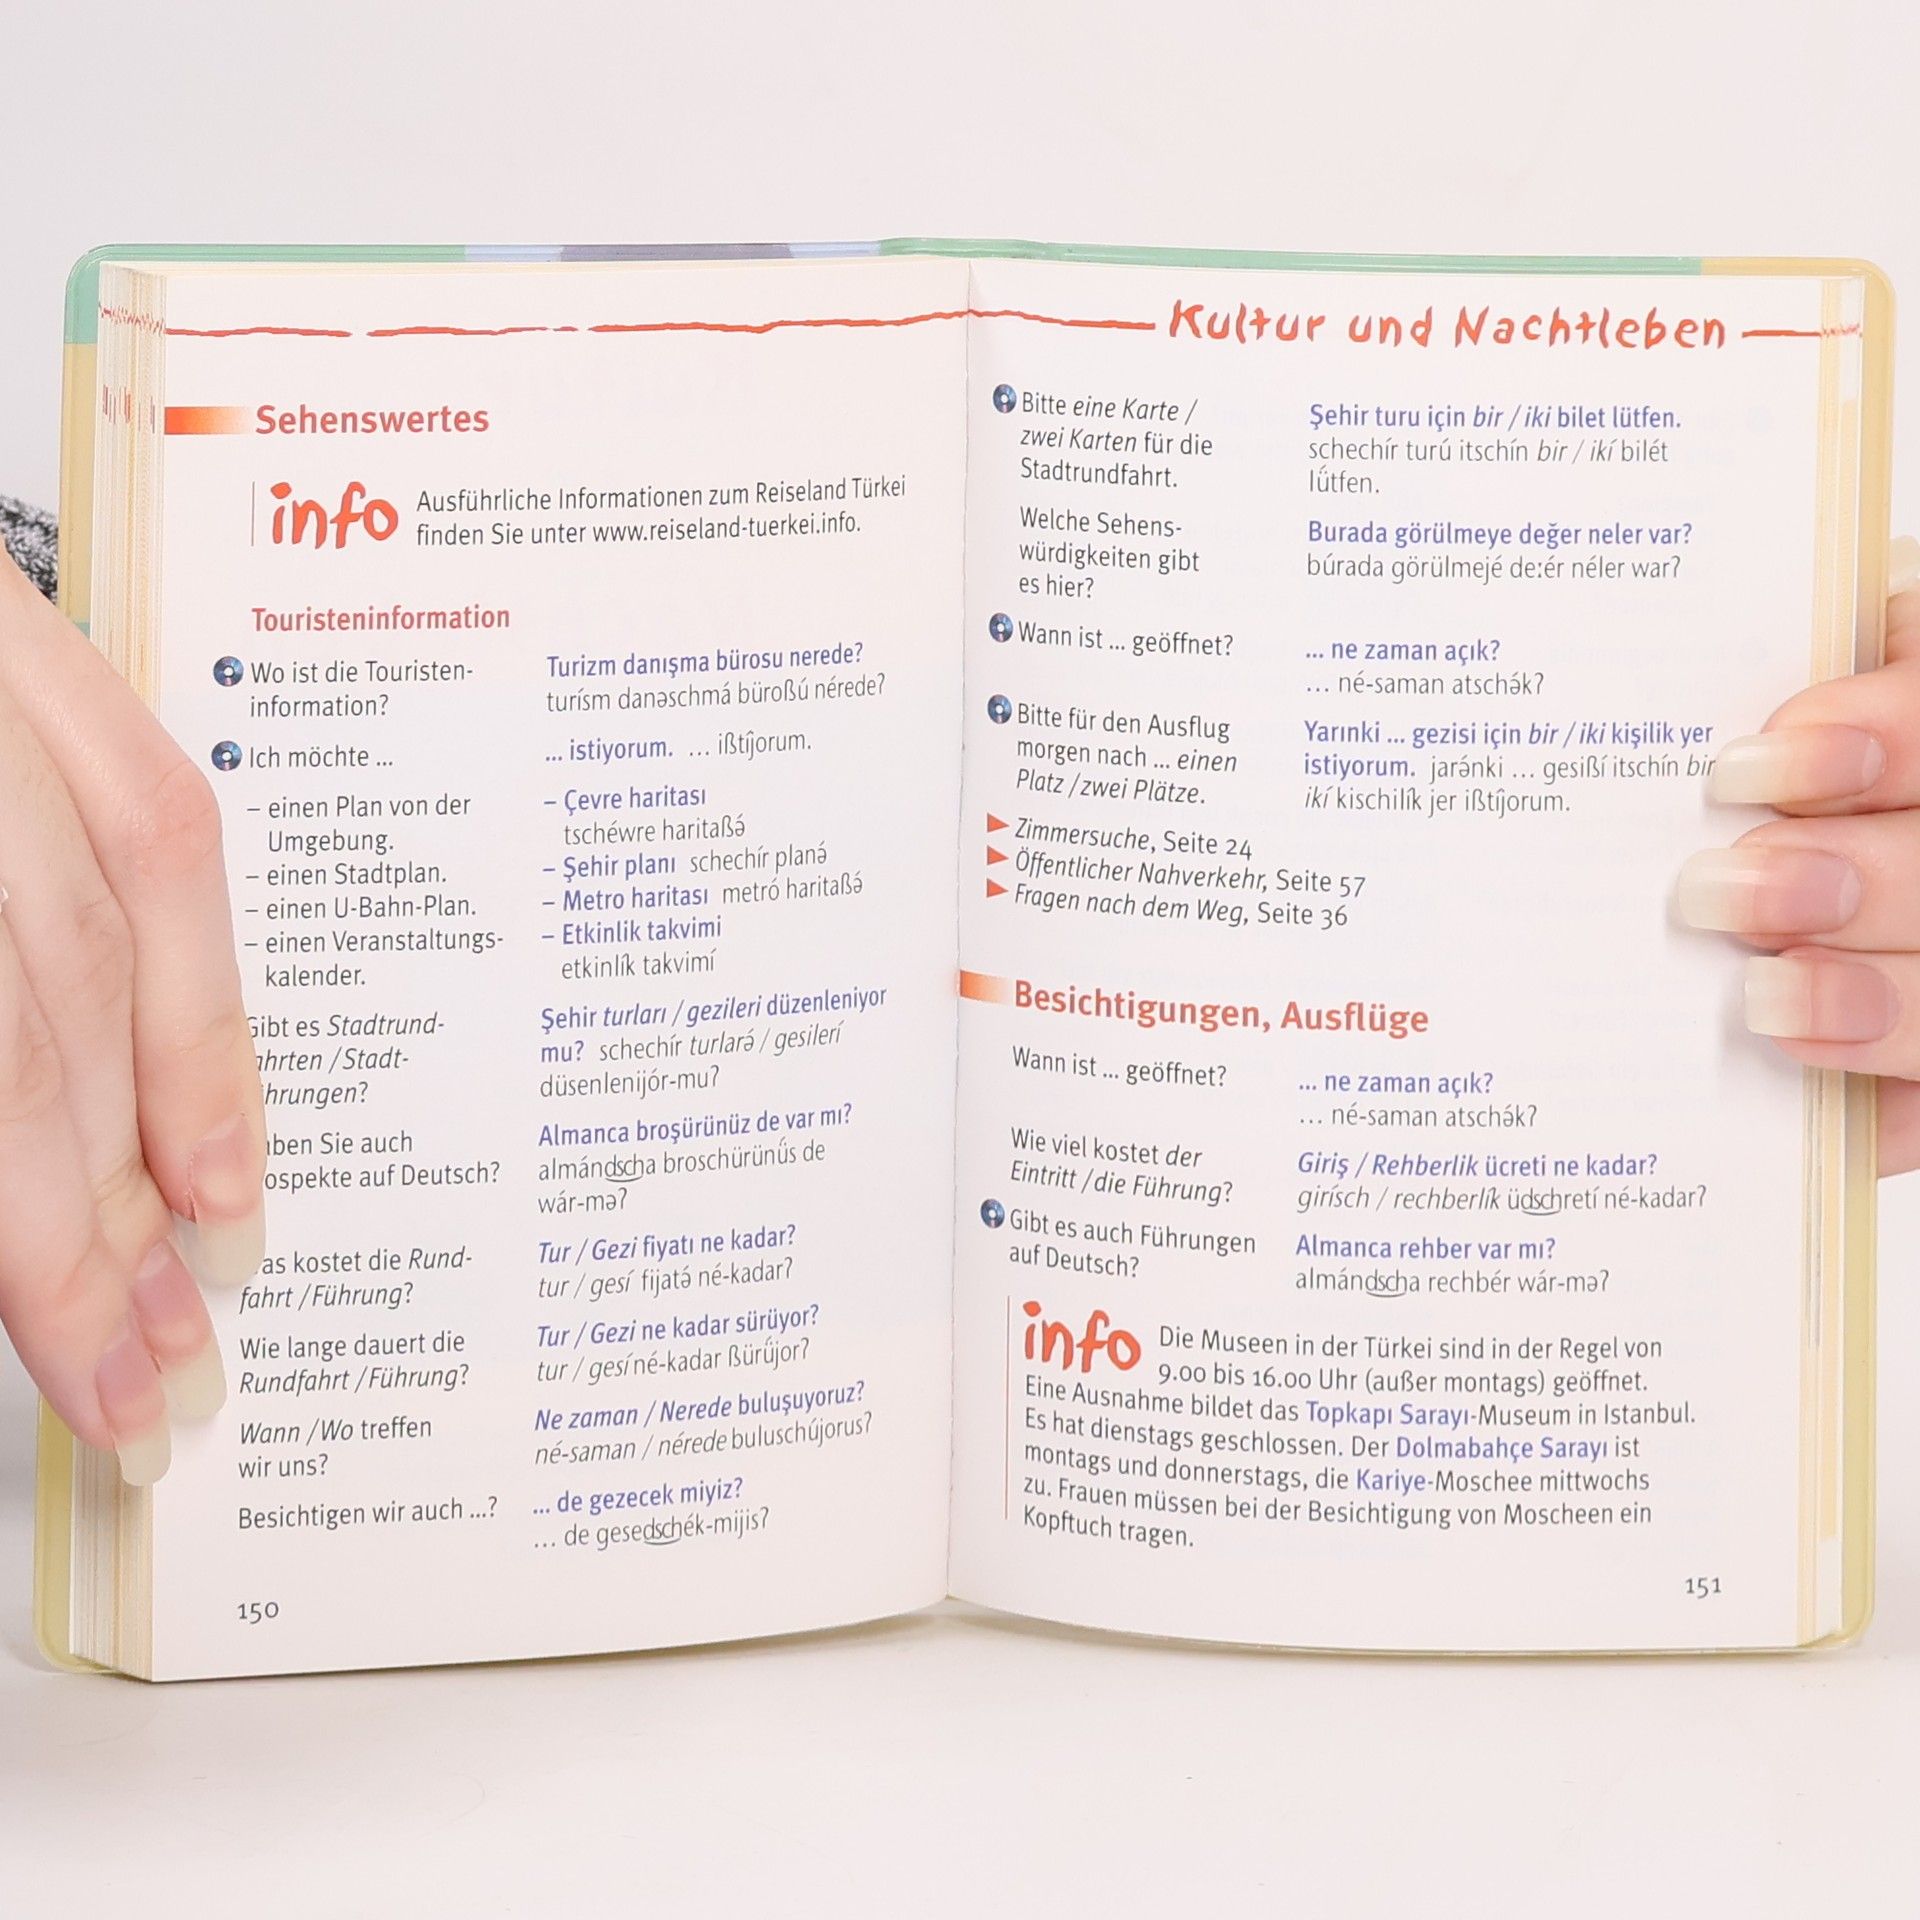 Sehenswertes
info Ausführliche Informationen zum Reiseland Türkei
finden Sie unter www.reiseland-tuerkei.info.
Touristeninformation
Wo ist die Touristen-
information?
Turizm danışma bürosu nerede?
turísm danəschmá büroßú nérede?
Ich möchte ...
... istiyorum. ... ißtíjorum.
– einen Plan von der
Umgebung.
– Çevre haritası
tschéwre haritaßə́
– einen Stadtplan.
– Şehir planı schechír planə́
– einen U-Bahn-Plan.
– Metro haritası metró haritaßə́
– einen Veranstaltungs-
kalender.
– Etkinlik takvimi
etkinlík takvimí
Gibt es Stadtrund-
/Stadt-
Şehir turları / gezileri düzenleniyor
mu? schechír turlarə́ / gesilerí
düsenlenijór-mu?
Sie auch
auf Deutsch?
Almanca broşürünüz de var mı?
almándscha broschürünǘs de
wár-mə?
kostet die Rund-
fahrt /Führung?
Tur / Gezi fiyatı ne kadar?
tur / gesí fijatə́ né-kadar?
Wie lange dauert die
Rundfahrt /Führung?
Tur / Gezi ne kadar sürüyor?
tur / gesí né-kadar ßürǘjor?
Wann /Wo treffen
wir uns?
Ne zaman / Nerede buluşuyoruz?
né-saman / nérede buluschújorus?
Besichtigen wir auch ...?
... de gezecek miyiz?
... de gesedschék-mijis?
150
Kultur und Nachtleben
Bitte eine Karte /
zwei Karten für die
Stadtrundfahrt.
Şehir turu için bir / iki bilet lütfen.
schechír turú itschín bir / ikí bilét
lǘtfen.
Welche Sehens-
würdigkeiten gibt
es hier?
Burada görülmeye değer neler var?
búrada görülmejé de:ér néler war?
Wann ist ... geöffnet?
... ne zaman açık?
... né-saman atschə́k?
Bitte für den Ausflug
morgen nach ... einen
Platz /zwei Plätze.
Yarınki ... gezisi için bir / iki kişilik yer
istiyorum. jarə́nki ... gesißí itschín bir
ikí kischilík jer ißtíjorum.
Zimmersuche, Seite 24
Öffentlicher Nahverkehr, Seite 57
Fragen nach dem Weg, Seite 36
Besichtigungen, Ausflüge
Wann ist ... geöffnet?
... ne zaman açık?
... né-saman atschə́k?
Wie viel kostet der
Eintritt /die Führung?
Giriş / Rehberlik ücreti ne kadar?
girísch / rechberlík üdschretí né-kadar?
Gibt es auch Führungen
auf Deutsch?
Almanca rehber var mı?
almándscha rechbér wár-mə?
info Die Museen in der Türkei sind in der Regel von
9.00 bis 16.00 Uhr (außer montags) geöffnet.
Eine Ausnahme bildet das Topkapı Sarayı-Museum in Istanbul.
Es hat dienstags geschlossen. Der Dolmabahçe Sarayı ist
montags und donnerstags, die Kariye-Moschee mittwochs
zu. Frauen müssen bei der Besichtigung von Moscheen ein
Kopftuch tragen.
151